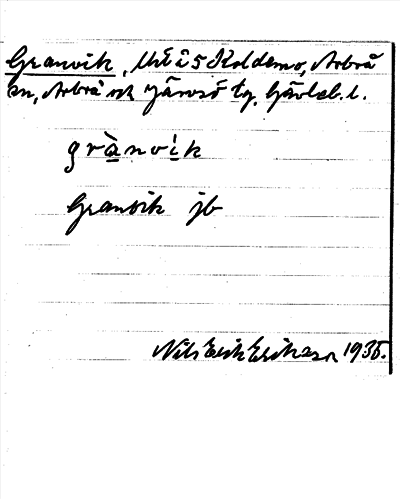 Granvik, Ml å 5 Koldemo, Arbrå
sn, Arbrå och Järvsö tg, Gävleb. l.
grànvìk
Granvik jb
Nils Erik Eriksson 1935.